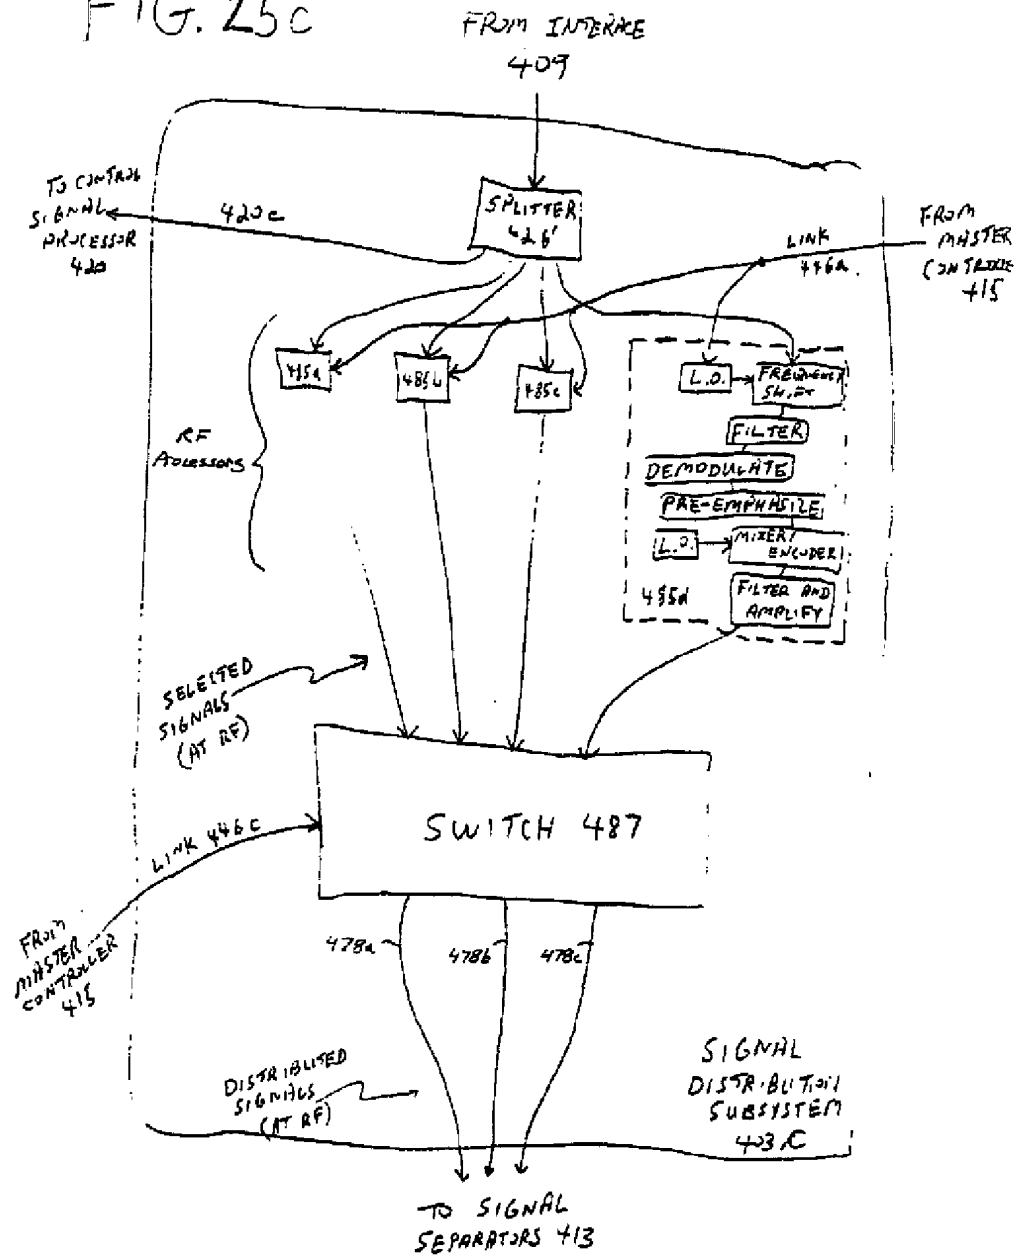 FIG. 25c
FROM INTERFACE
409
TO CONTROL
SIGNAL
PROCESSOR
420
420c
SPLITTER
426'
LINK
446a
FROM
MASTER
CONTROLLER
415
RF
Processors
485a
485b
485c
L.O.
FREQUENCY
SHIFT
FILTER
DEMODULATE
PRE-EMPHASIZE
L.O.
MIXER/
ENCODER
FILTER AND
AMPLIFY
485d
SELECTED
SIGNALS
(AT RF)
SWITCH 487
LINK 446c
FROM
MASTER
CONTROLLER
415
478a
478b
478c
DISTRIBUTED
SIGNALS
(AT RF)
SIGNAL
DISTRIBUTION
SUBSYSTEM
403C
TO SIGNAL
SEPARATORS 413